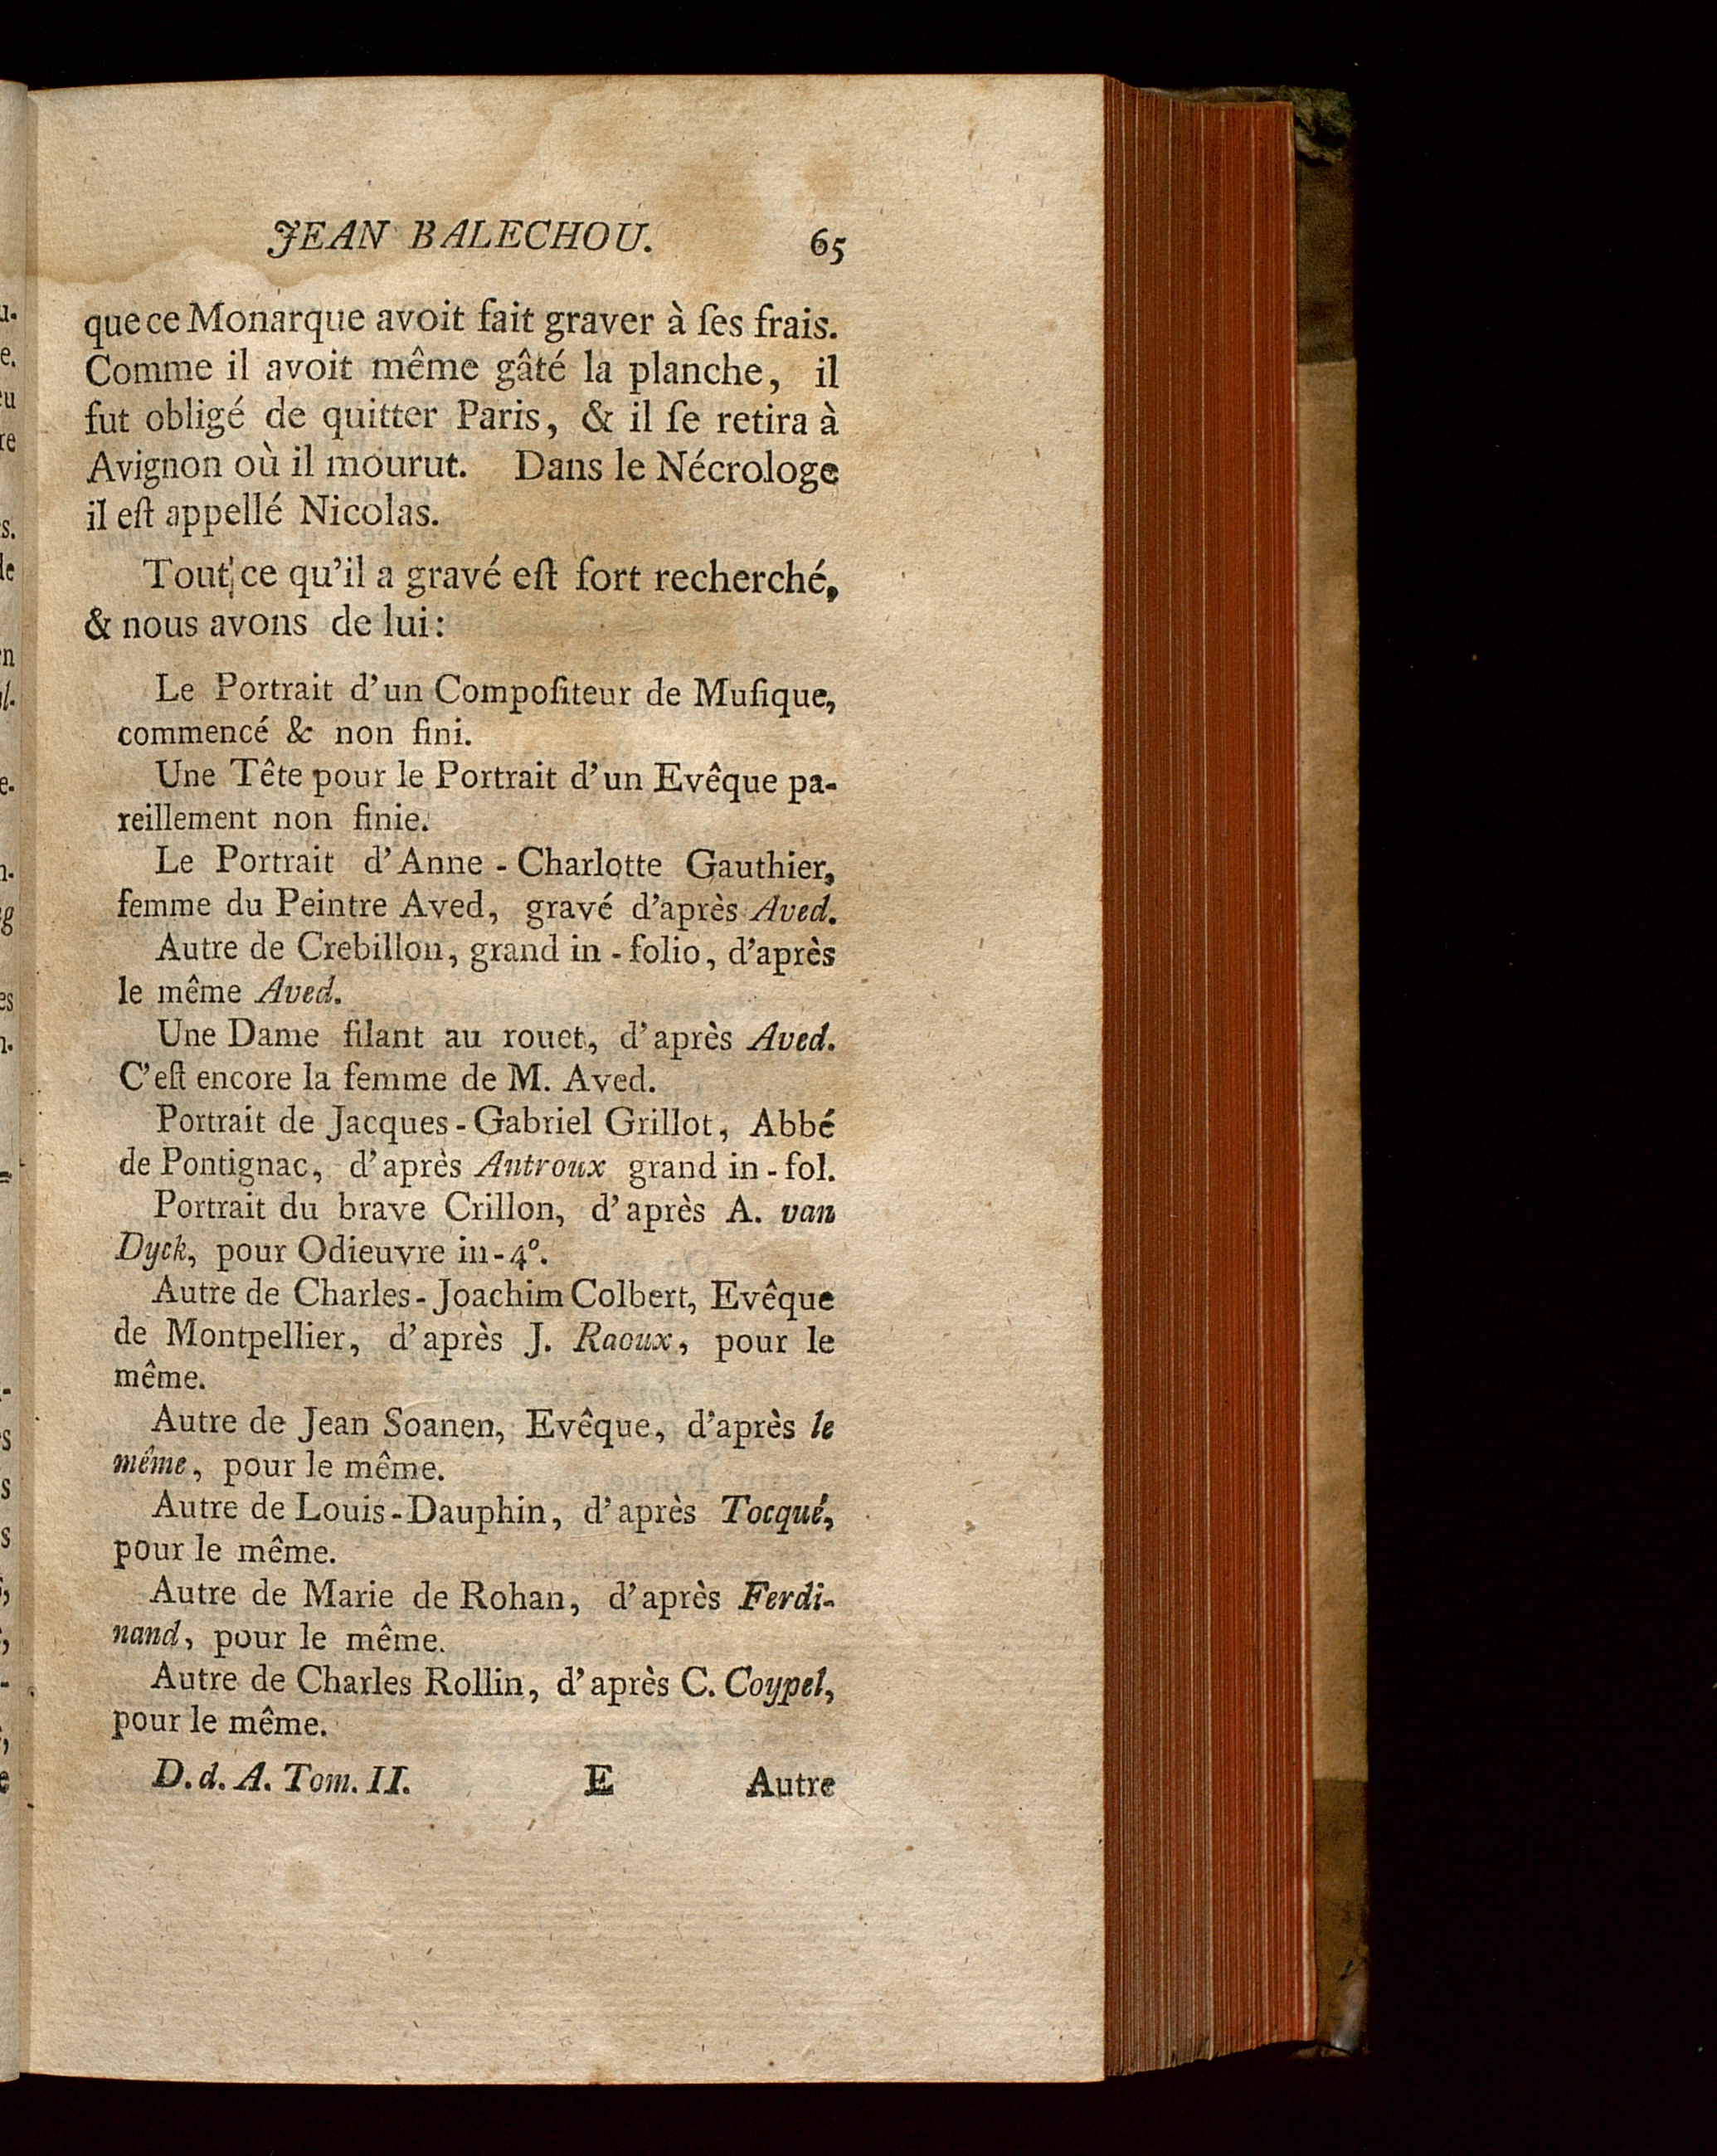 JEAN BALECHOU. 65
que ce Monarque avoit fait graver à ſes frais.
Comme il avoit même gâté la planche, il
fut obligé de quitter Paris, & il ſe retira à
Avignon où il mourut. Dans le Nécrologe
il eſt appellé Nicolas.
Tout ce qu'il a gravé eſt fort recherché,
& nous avons de lui:
Le Portrait d'un Compoſiteur de Muſique,
commencé & non fini.
Une Tête pour le Portrait d'un Evêque pa-
reillement non finie.
Le Portrait d'Anne - Charlotte Gauthier,
femme du Peintre Aved, gravé d'après Aved.
Autre de Crebillon, grand in - folio, d'après
le même Aved.
Une Dame filant au rouet, d'après Aved.
C'eſt encore la femme de M. Aved.
Portrait de Jacques - Gabriel Grillot, Abbé
de Pontignac, d'après Antroux grand in - fol.
Portrait du brave Crillon, d'après A. van
Dyck, pour Odieuvre in-4°.
Autre de Charles - Joachim Colbert, Evêque
de Montpellier, d'après J. Raoux, pour le
même.
Autre de Jean Soanen, Evêque, d'après le
même, pour le même.
Autre de Louis-Dauphin, d'après Tocqué,
pour le même.
Autre de Marie de Rohan, d'après Ferdi-
nand, pour le même.
Autre de Charles Rollin, d'après C. Coypel,
pour le même.
D. d. A. Tom. II. E Autre